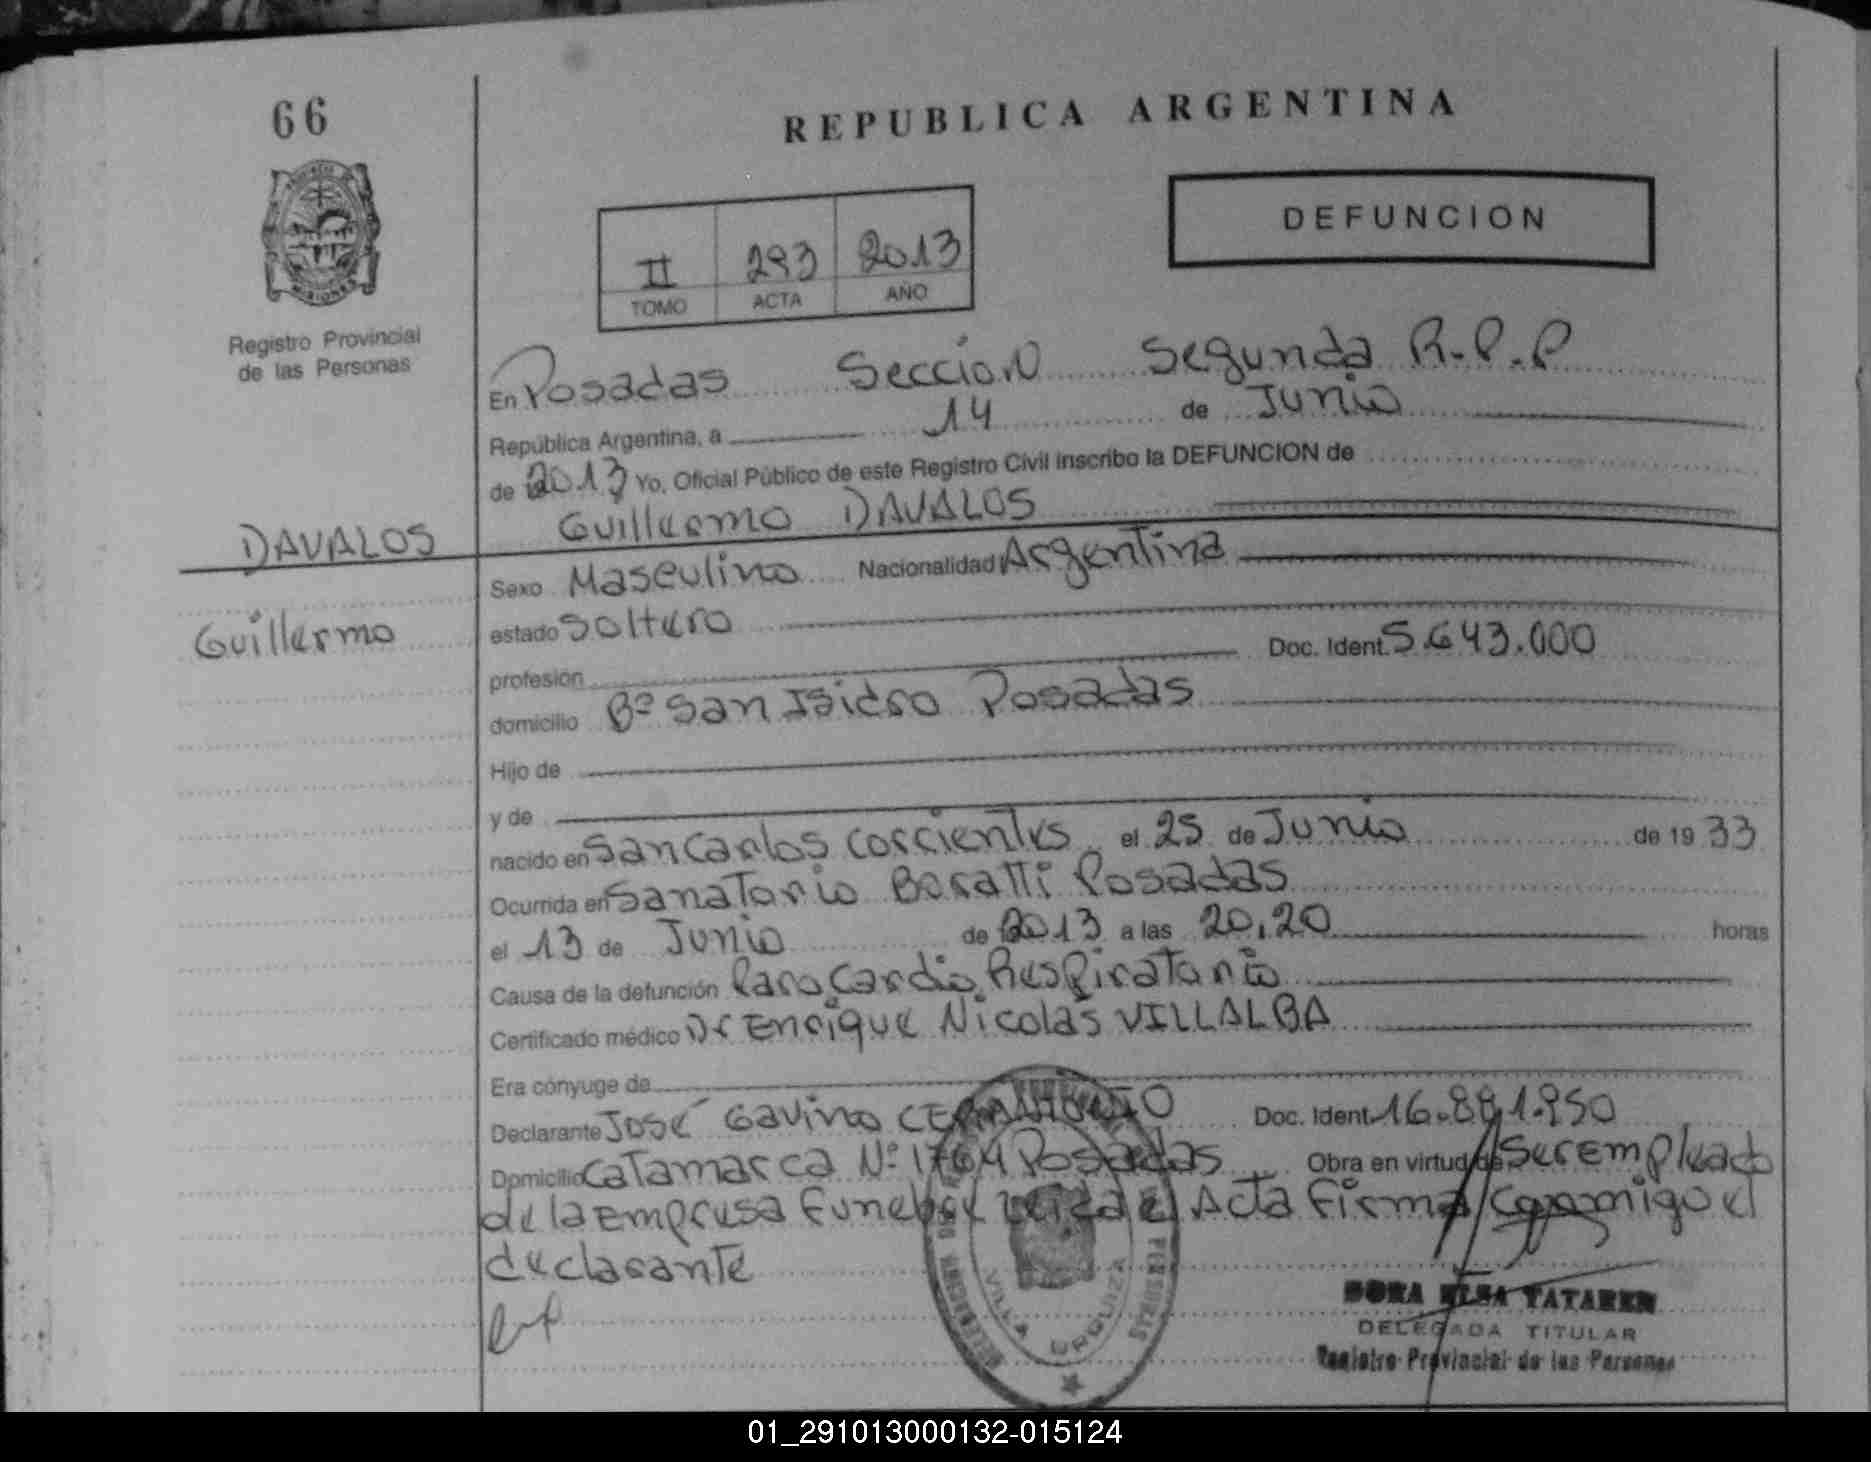 66
REPUBLICA ARGENTINA
DEFUNCION
II 293 2013
TOMO ACTA AÑO
MISIONES
Registro Provincial
de las Personas
En Posadas Seccion Segunda R.P.P
República Argentina, a 14 de Junio
de 2013 Yo, Oficial Público de este Registro Civil inscribo la DEFUNCION de
Guillermo DAVALOS
DAVALOS
Guillermo
Sexo Masculino Nacionalidad Argentina
estado Soltero
profesión Doc. Ident. 5.643.000
domicilio Bº San Isidro Posadas
Hijo de
y de
nacido en San Carlos Corrientes el 25 de Junio de 1933
Ocurrida en Sanatorio Boratti Posadas
el 13 de Junio de 2013 a las 20,20 horas
Causa de la defunción Paro Cardio Respiratorio
Certificado médico Dr Enrique Nicolas VILLALBA
Era cónyuge de
Declarante José Gavino Doc. Ident. 16.881.950
Domicilio Catamarca Nº 1764 Posadas Obra en virtud de Ser empleado
de la Empresa Funebre Leida el Acta Firma Conmigo el
declarante
VILLA URQUIZA
DORA ELSA TATAREN
DELEGADA TITULAR
Registro Provincial de las Personas
01_291013000132-015124